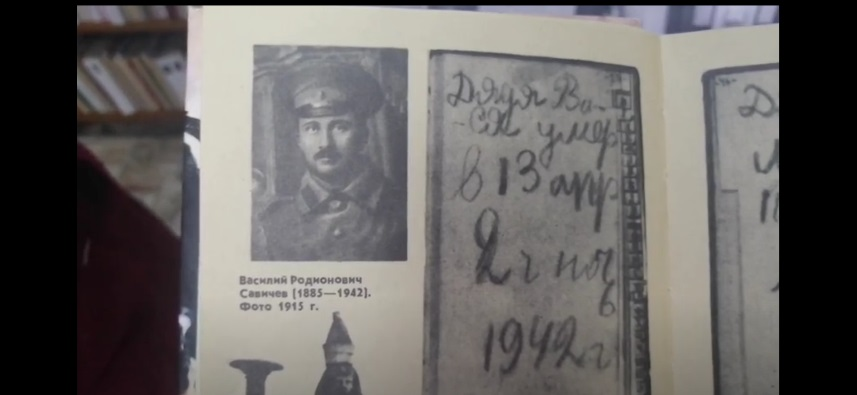 Василий Родионович
Савичев [1885—1942].
Фото 1915 г.
Дядя Ва-
-ся умер
в 13 апр
2 ч ноч
ь
1942 г